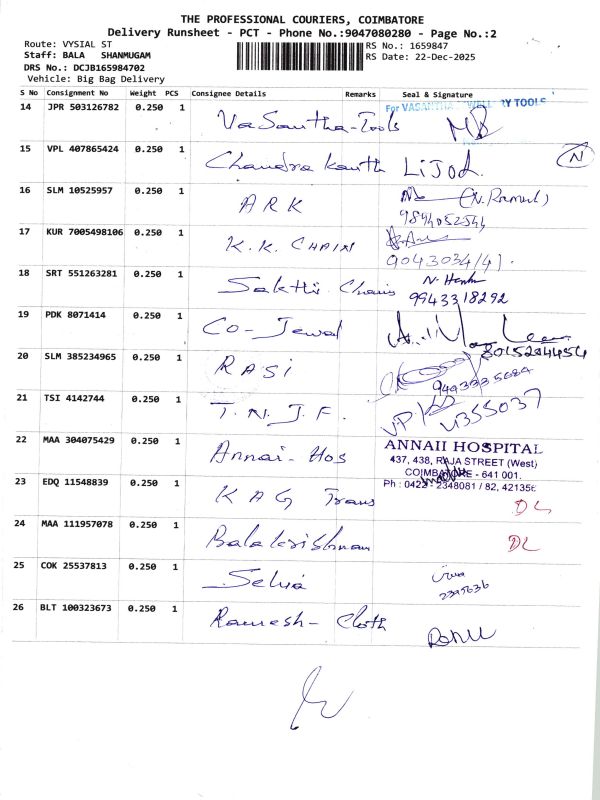 THE PROFESSIONAL COURIERS, COIMBATORE
Delivery Runsheet - PCT - Phone No.:9047080280 - Page No.:2
Route: VYSIAL ST
RS No.: 1659847
Staff: BALA SHANMUGAM
RS Date: 22-Dec-2025
DRS No.: DCJB165984702
Vehicle: Big Bag Delivery
S No Consignment No Weight PCS Consignee Details Remarks Seal & Signature
14 JPR 503126782 0.250 1 Vasantha-Tools For VASANTHA Y TOOLS
15 VPL 407865424 0.250 1 Chandra Kanth LiJOd. N
16 SLM 10525957 0.250 1 ARK (N. Ramul)
9894052544
17 KUR 7005498106 0.250 1 K.K. CHAIN
9043034141.
18 SRT 551263281 0.250 1 Sakthi Chains
9943318292
19 PDK 8071414 0.250 1 Co-Jewal
8015204454
20 SLM 385234965 0.250 1 RASI
21 TSI 4142744 0.250 1 T.N.J.F. 4355037
22 MAA 304075429 0.250 1 Annai-Hos ANNAII HOSPITAL
437, 438, RAJA STREET (West)
COIMBATORE - 641 001.
Ph : 0422 - 2348081 / 82, 421356
23 EDQ 11548839 0.250 1 KAG Trans DL
24 MAA 111957078 0.250 1 Balakrishnan DL
25 COK 25537813 0.250 1 Selvia
2395636
26 BLT 100323673 0.250 1 Ramesh-Cloth